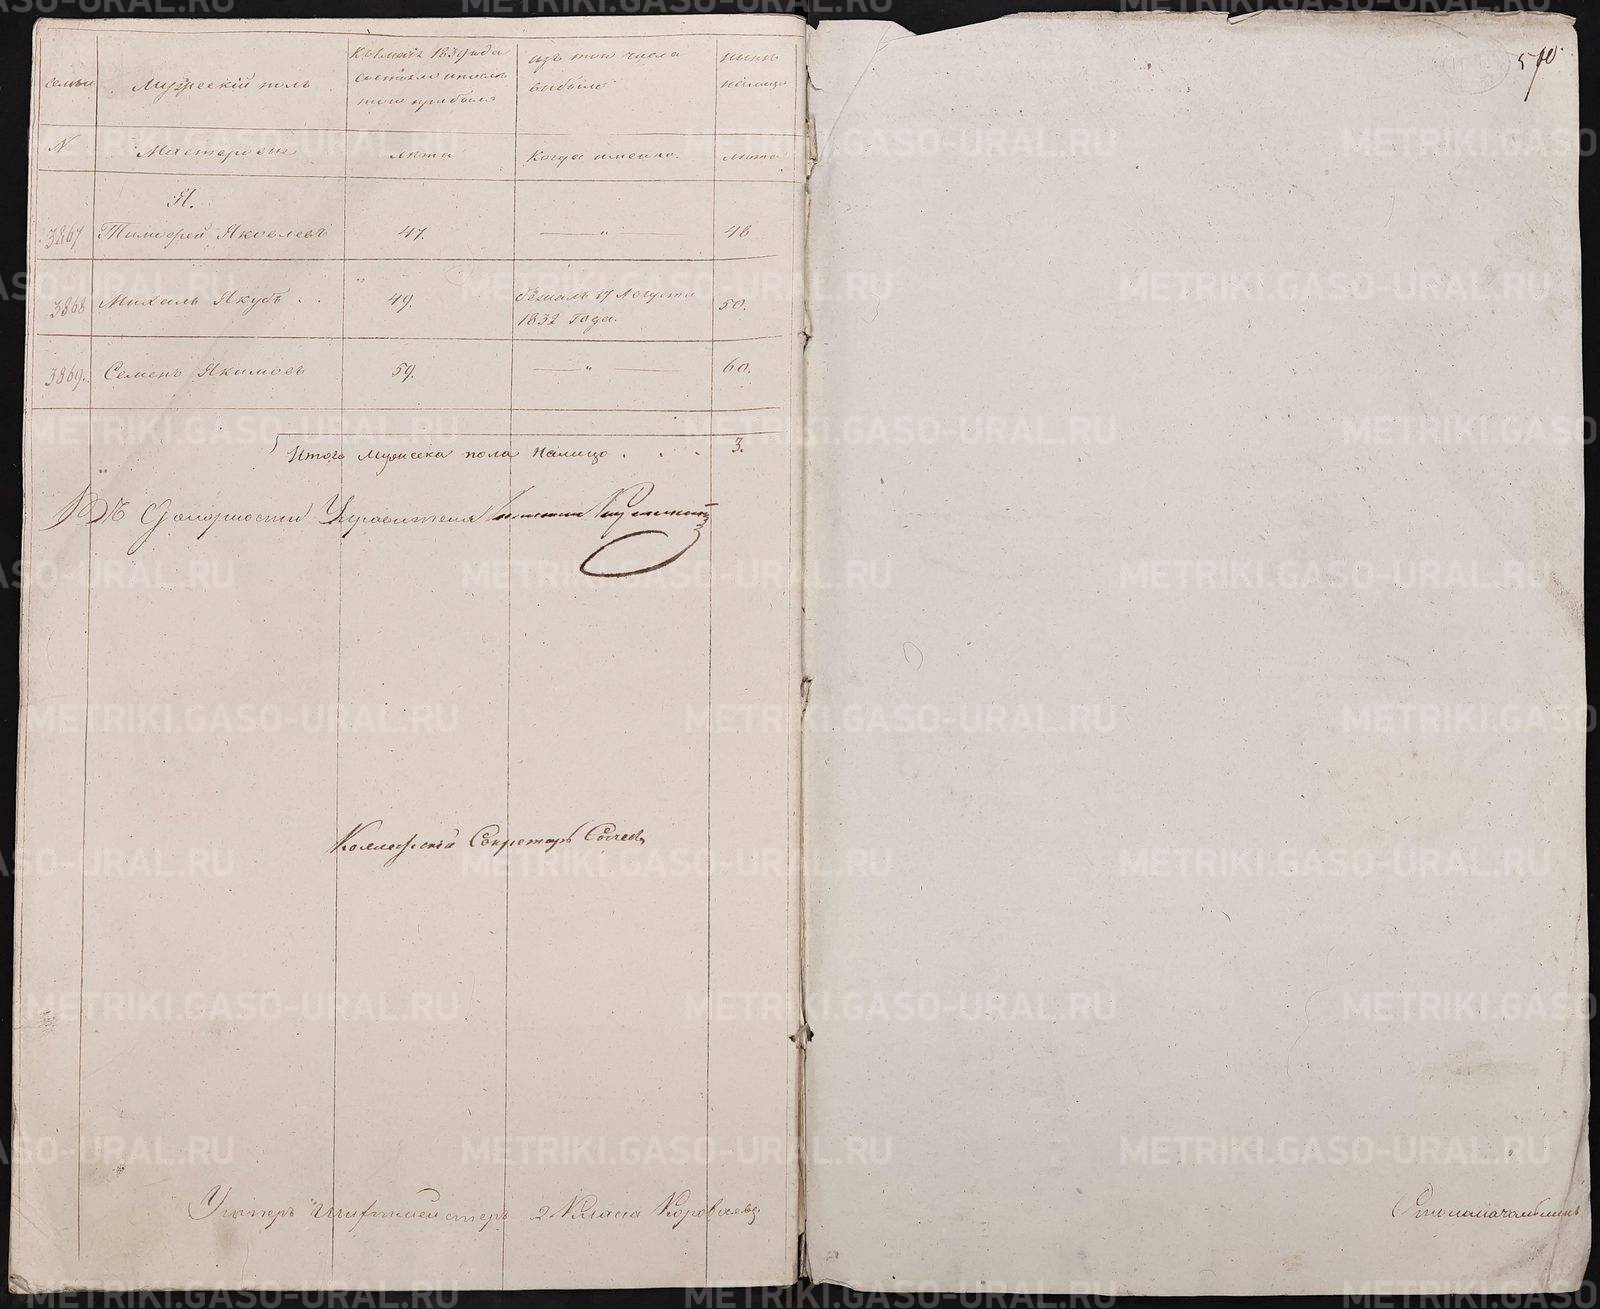 семьи
Мужескій полъ
Къ 1 мая 1839 года
состояло и после
того прибыло
изъ того числа
выбыло
ныне
налицо
N
Мастеровые
лѣта
Когда именно.
лѣта
Я.
3867 Тимофей Яковлевъ 47. — " — 48
3868 Михаль Якубъ . . 49. бежалъ 17 Августа 50.
1832 Года.
3869. Семенъ Якимовъ 59. — " — 60.
Итого мужеска пола налицо . . . 3.
Въ Должности Управителя
Коллежскій Секретарь
Унтеръ Шихтмейстеръ 2 Класса Короваевъ
570
Столоначальникъ
METRIKI.GASO-URAL.RU